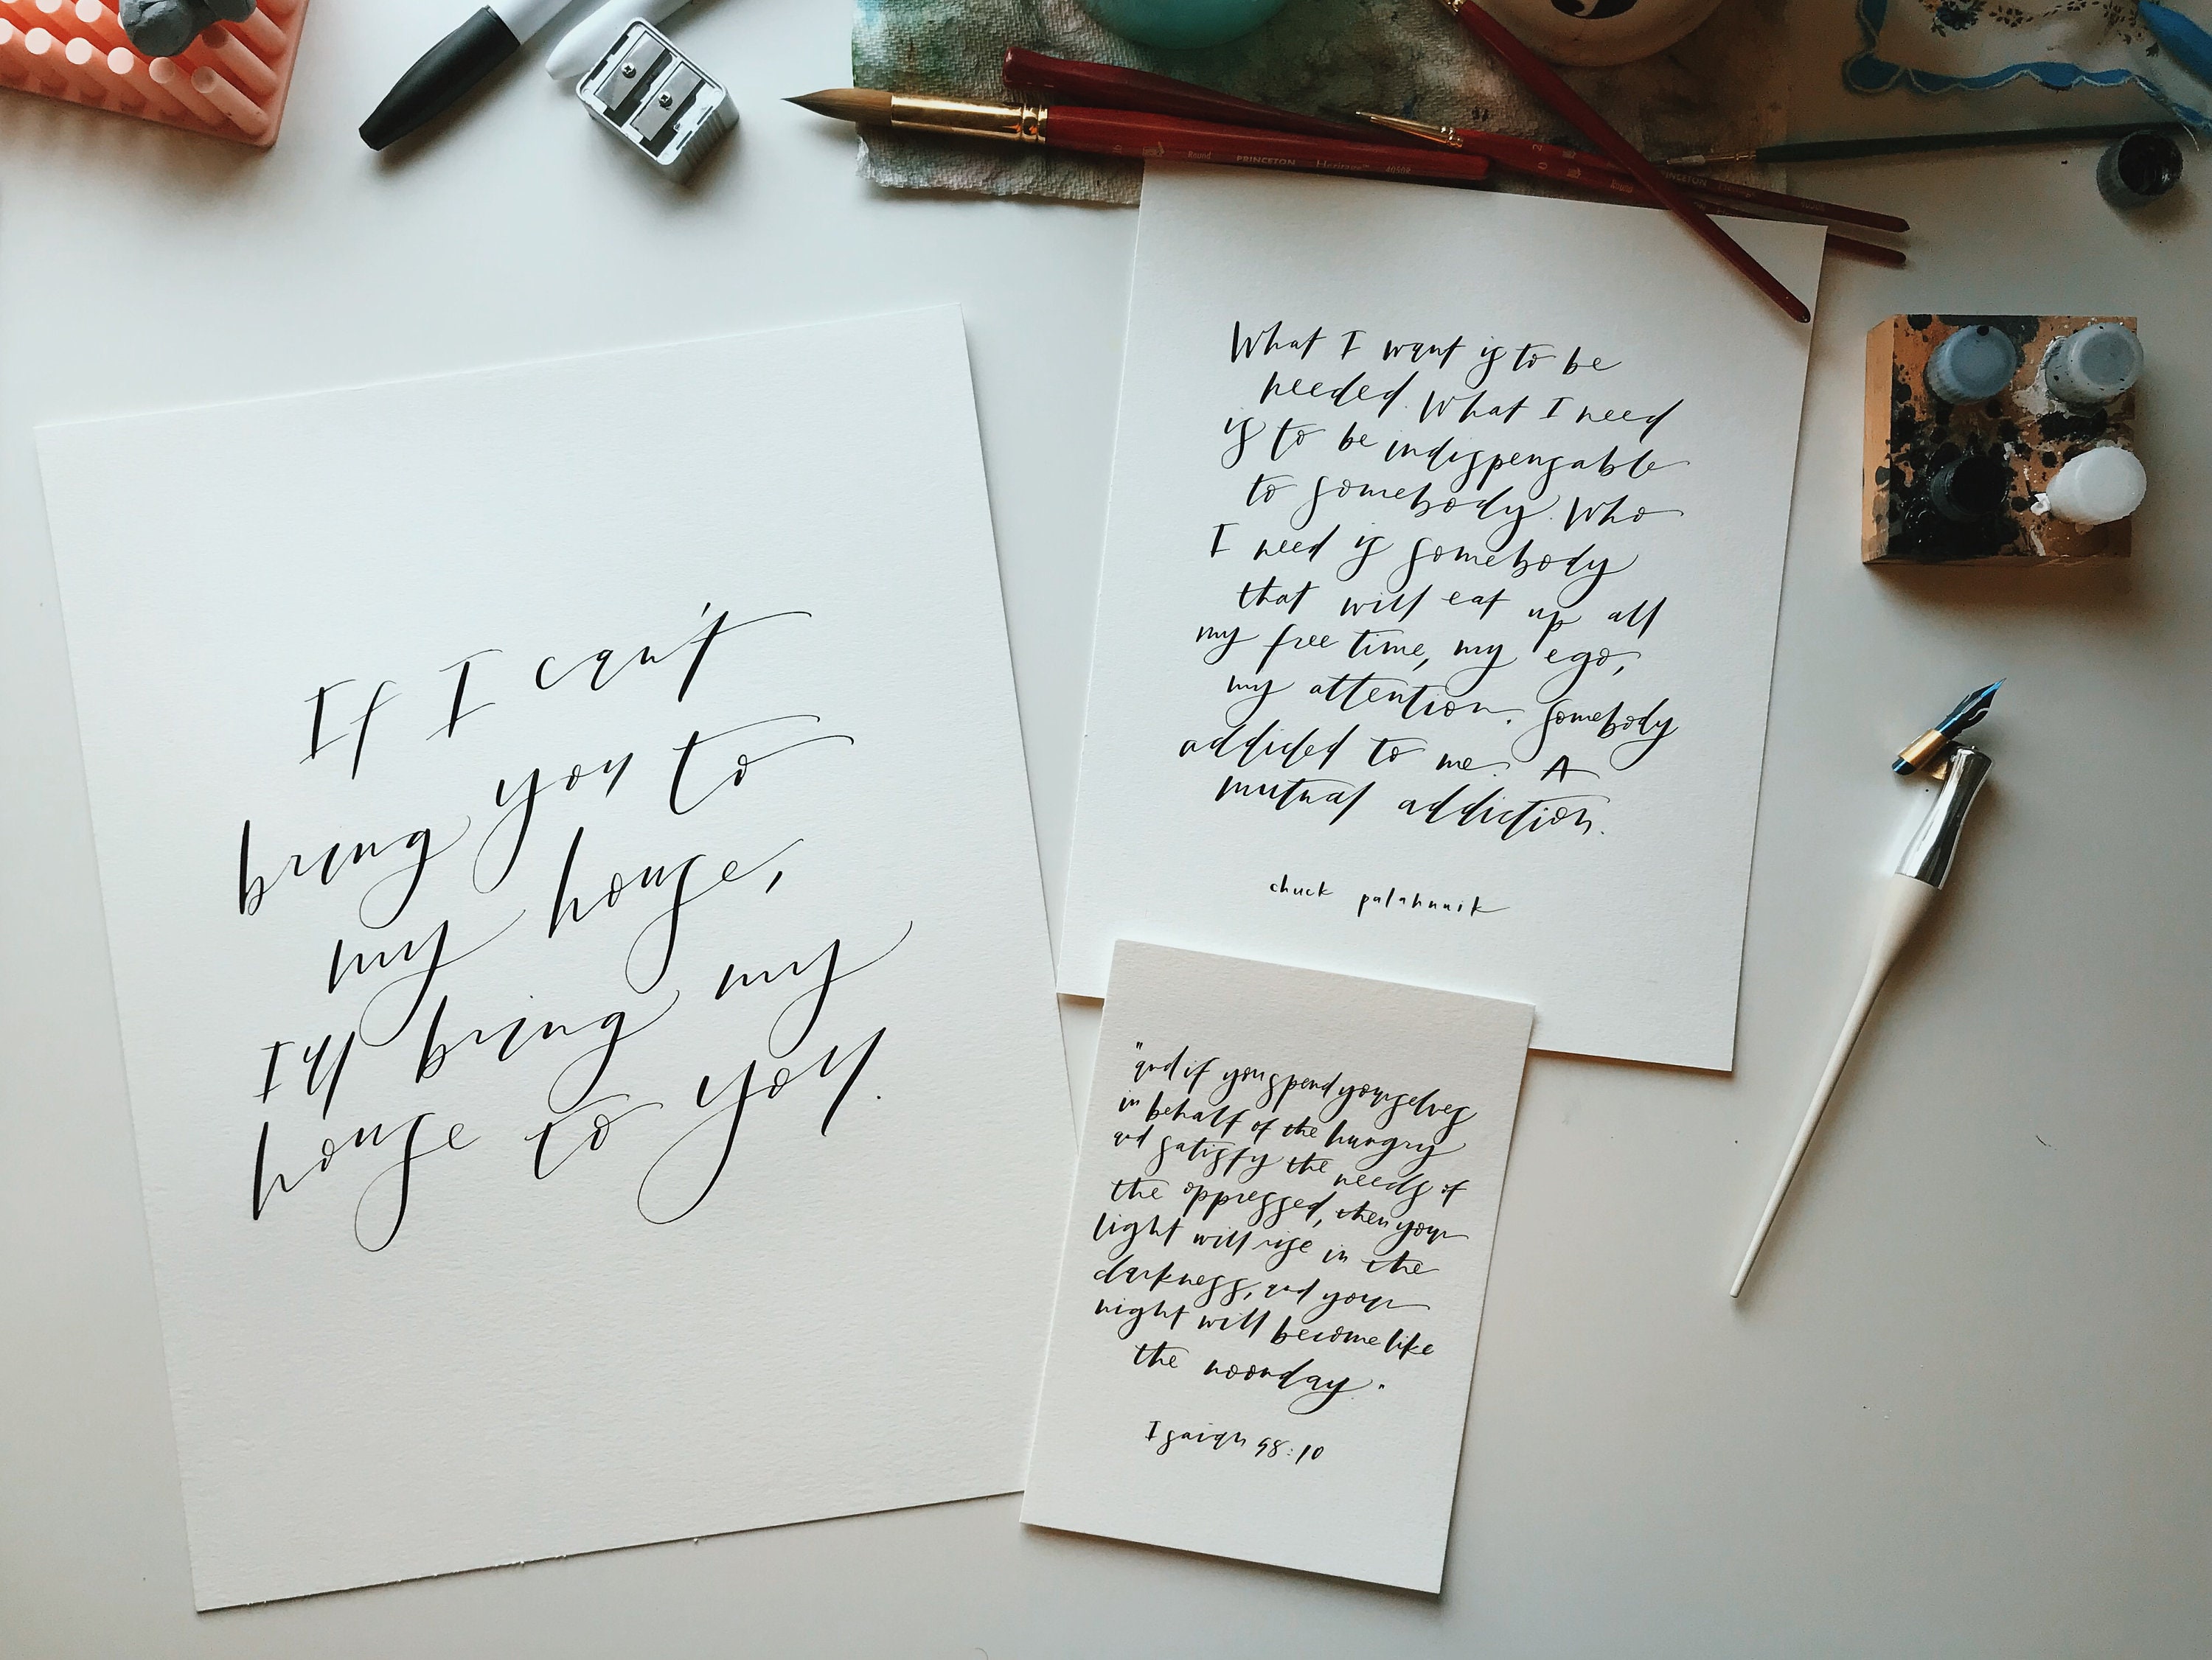 If I can't
bring you to
my house,
I'll bring my
house to you.
What I want is to be
needed. What I need
is to be indispensable
to somebody. Who
I need is somebody
that will eat up all
my free time, my ego,
my attention. Somebody
addicted to me. A
mutual addiction.
chuck palahnuik
"and if you spend yourselves
in behalf of the hungry
and satisfy the needs of
the oppressed, then your
light will rise in the
darkness, and your
night will become like
the noonday."
Isaiah 58:10
Round PRINCETON Heritage 4050R